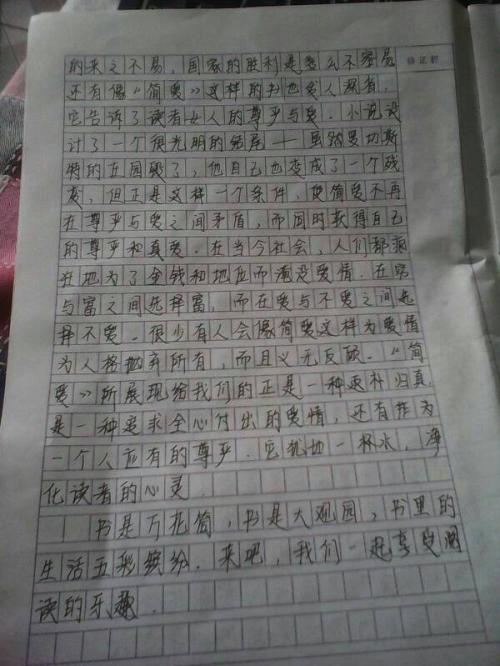 的来之不易，国家的胜利是多么不容易
还有像“简爱》这样的书也发人深省，
它告诉了读者女人的尊严与爱．小说设
计了一个很光明的结尾——虽然罗切斯
特的庄园毁了，他自己也变成了一个残
废，但正是这样一个条件，使简爱不再
在尊严与爱之间矛盾，而同时获得自己
的尊严和真爱．在当今社会，人们都疯
狂地为了金钱和地位而淹没爱情．在穷
与富之间选择富，而在爱与不爱之间选
择不爱．很少有人会像简爱这样为爱情
为人格抛弃所有，而且义无反顾．“简
爱》所展现给我们的正是一种返朴归真
是一种追求全心付出的爱情，还有作为
一个人应有的尊严．它犹如一杯水，净
化读者的心灵
书是万花筒，书是大观园，书里的
生活五彩缤纷．来吧，我们一起享受阅
读的乐趣．